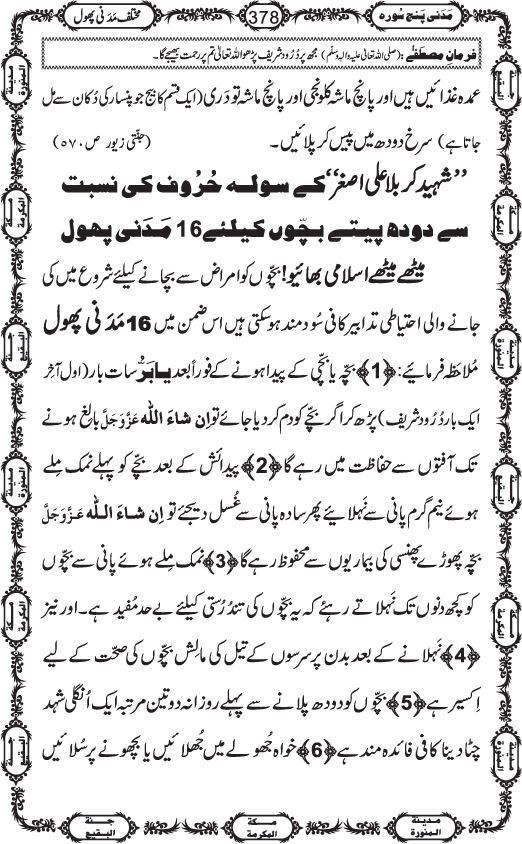 مَدَنی پنج سُورہ
378
مختلف مَدَنی پھول
فرمانِ مصطَفٰے :(صلی اللہ تعالیٰ علیہ والہ وسلم) مجھ پر دُرُود شریف پڑھو اللہ تعالیٰ تم پر رحمت بھیجے گا۔
عمدہ غذائیں ہیں اور پانچ ماشہ کلونجی اور پانچ ماشہ تو دَری (ایک قسم کا بیج جو پنسار کی دُکان سے مل
جاتا ہے) سرخ دودھ میں پیس کر پلائیں۔ (جنّتی زیور ص ۵۷۰)
’’شہیدِ کربلا علی اصغر‘‘ کے سولہ حُرُوف کی نسبت
سے دودھ پیتے بچّوں کیلئے 16 مَدَنی پھول
میٹھے میٹھے اسلامی بھائیو! بچّوں کو امراض سے بچانے کیلئے شروع میں کی
جانے والی احتیاطی تدابیر کافی سُود مند ہو سکتی ہیں اس ضمن میں 16 مَدَنی پھول
مُلاحَظہ فرمائیے: ﴿1﴾ بچّہ یا بچّی کے پیدا ہونے کے فوراً بعد یَا بَرُّ سات بار (اول آخِر
ایک بار دُرُود شریف) پڑھ کر اگر بچّے کو دم کر دیا جائے تو ان شاءَ اللہ عَزَّوَجَلَّ بالِغ ہونے
تک آفتوں سے حفاظت میں رہے گا ﴿2﴾ پیدائش کے بعد بچّے کو پہلے نمک ملے
ہوئے نیم گرم پانی سے نَہلائیے پھر سادہ پانی سے غُسل دیجئے تو اِن شاءَ اللہ عَزَّوَجَلَّ
بچّہ پھوڑے پھنسی کی بیماریوں سے محفوظ رہے گا ﴿3﴾ نمک مِلے ہوئے پانی سے بچّوں
کو کچھ دنوں تک نَہلاتے رہئے کہ یہ بچّوں کی تندُرُستی کیلئے بے حد مُفید ہے۔ اور نیز
﴿4﴾ نَہلانے کے بعد بدن پر سرسوں کے تیل کی مالِش بچّوں کی صحّت کے لیے
اِکسیر ہے ﴿5﴾ بچّوں کو دودھ پلانے سے پہلے روزانہ دو تین مرتبہ ایک اُنگلی شہد
چٹا دینا کافی فائدہ مند ہے ﴿6﴾ خواہ جُھولے میں جُھلائیں یا بچھونے پر سُلائیں
مدینۃ المنورۃ
مکۃ المکرمۃ
جنۃ البقیع
مدینۃ المنورۃ
مکۃ المکرمۃ
جنۃ البقیع
جنۃ البقیع
مکۃ المکرمۃ
مدینۃ المنورۃ
جنۃ البقیع
مکۃ المکرمۃ
مدینۃ المنورۃ
مدینۃ المنورۃ
مکۃ المکرمۃ
جنۃ البقیع